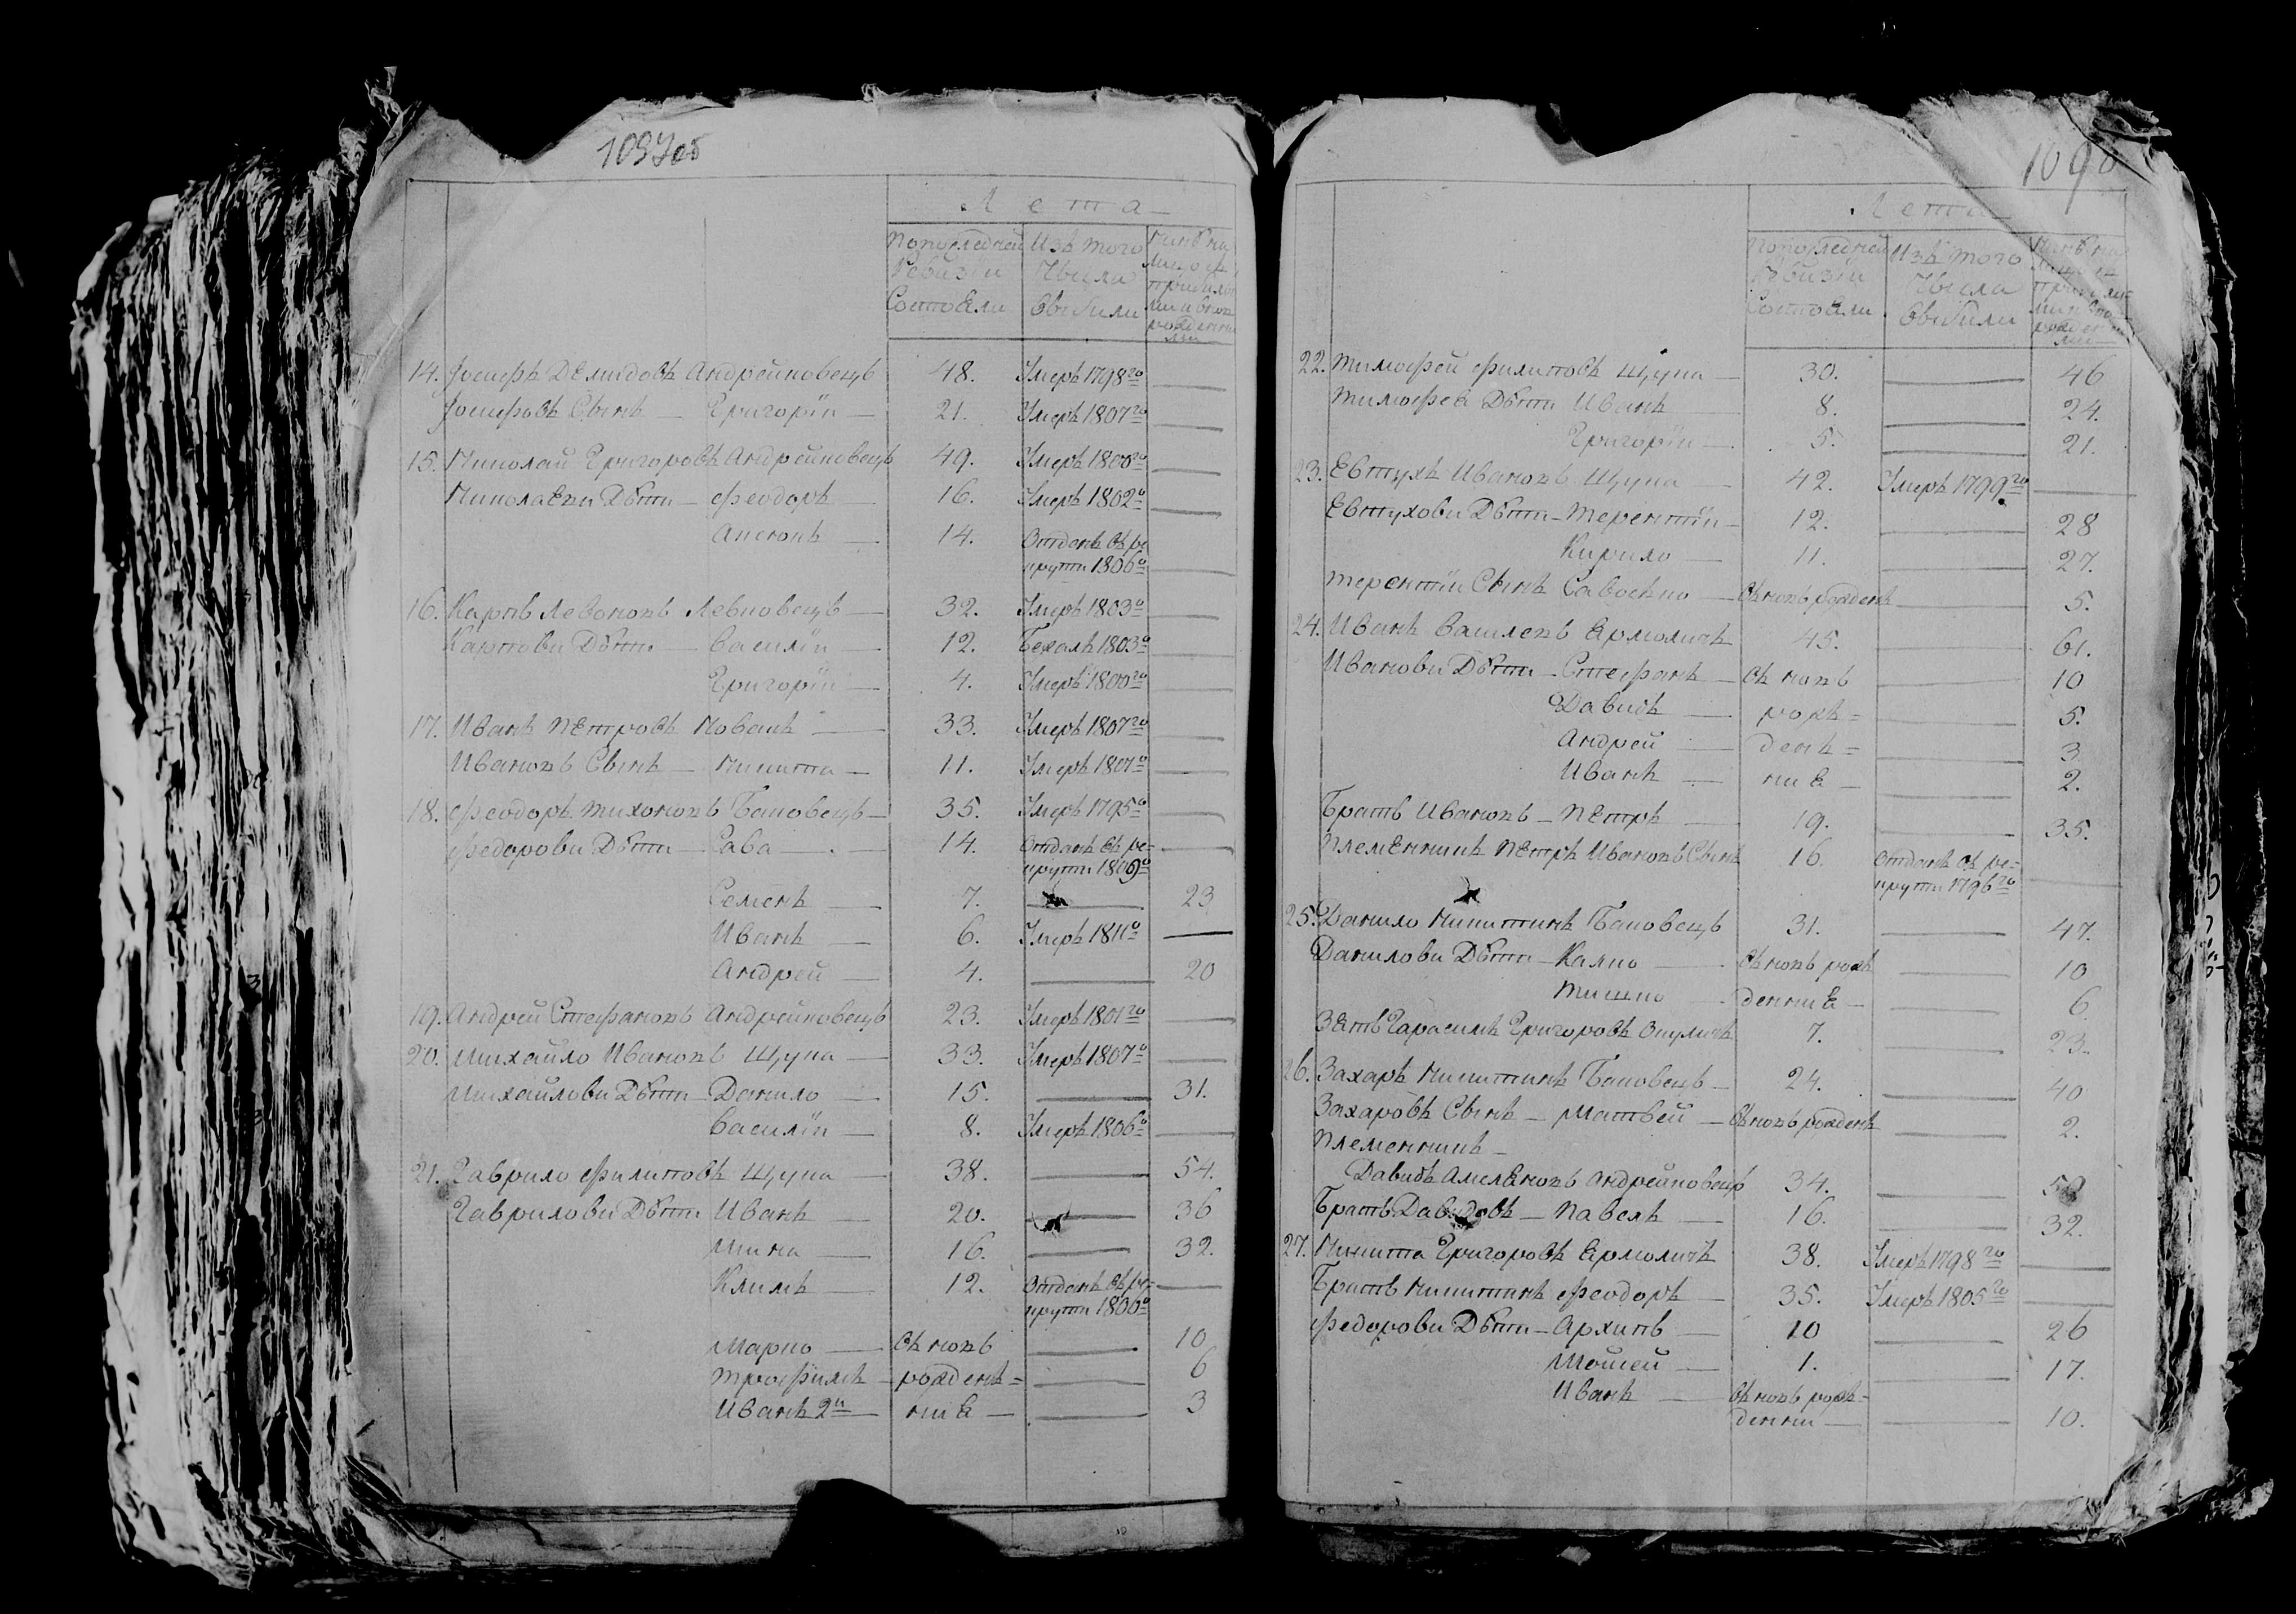 1097об
Лета
Попоследней Изъ того Нинѣ на
Ревизїи Числа лицо съ
Состояли Выбили прибилы
ми и внов
рожденны
ми
14. Іосифъ Демидовъ Андрейковецъ 48. Умеръ 1798го —
Іосифовъ Сынъ — Григорїй — 21. Умеръ 1807го —
15. Николай Григоровъ Андрейковецъ 49. Умеръ 1800го —
Николаеви Дѣти — Феодоръ — 16. Умеръ 1802го —
Антонъ — 14. Отданъ въ ре
крути 1806го —
16. Карпъ Левоновъ Левковецъ — 32. Умеръ 1803го —
Карпови Дѣти — Василїй — 12. Бежалъ 1803го —
Григорїй — 4. Умеръ 1800го —
17. Иванъ Петровъ Коваль — 33. Умеръ 1807го —
Ивановъ Сынъ — Никита — 11. Умеръ 1801го —
18. Феодоръ Тихоновъ Баковецъ — 35. Умеръ 1795го —
Федорови Дѣти — Сава — 14. Отданъ въ ре=
крути 1809го —
Семенъ — 7. — 23
Иванъ — 6. Умеръ 1811го —
Андрей — 4. — 20
19. Андрей Стефановъ Андрейковецъ 23. Умеръ 1801го —
20. Михайло Ивановъ Щупа — 33. Умеръ 1807го —
Михайлови Дѣти — Данило — 15. — 31.
Василїй — 8. Умеръ 1806го —
21. Гаврило Филиповъ Щупа — 38. — 54.
Гаврилови Дѣти Иванъ — 20. — 36
Мина — 16. — 32.
Климъ — 12. Отданъ въ ре=
крути 1806го —
Марко — Въ новъ — 10
Трофимъ — рожденъ= — 6
Иванъ 2й — ние — — 3
1098
Лета
Попоследней Изъ того Нинѣ на
Ревизїи Числа лицо съ
Состояли Выбили прибилы=
ми и вно
рожден
ми
22. Тимофей Филиповъ Щупа — 30. — 46
Тимофея Дѣти Иванъ — 8. — 24.
Григорїй — 5. — 21.
23. Евтухъ Ивановъ Щупа — 42. Умеръ 1799го —
Евтухови Дѣти — Терентїй — 12. — 28
Кирило — 11. — 27.
Терентїй Сынъ Савостко — Въ новъ рожденъ — 5.
24. Иванъ Василевъ Ермоличъ 45. — 61.
Иванови Дѣти — Стефанъ — Въ новъ — 10
Давидъ — рож= — 5.
Андрей — ден= — 3
Иванъ — ние — — 2.
Братъ Ивановъ — Петръ — 19. — 35.
Племенникъ Петръ Ивановъ Сынъ 16. Отданъ въ ре=
крути 1796го —
25. Данило Никитинъ Баковецъ 31. — 47.
Данилови Дѣти — Калко — Въ новъ рож — 10
Тишко — дение — — 6.
Зять Гарасимъ Григоровъ Окуличъ 7. — 23.
26. Захаръ Никитинъ Баковецъ — 24. — 40
Захаровъ Сынъ — Матвей — Въ новъ рожденъ — 2.
Племенникъ —
Давидъ Амеляновъ Андрейковецъ 34. — 50
Братъ Давидовъ — Павелъ — 16. — 32.
27. Никита Григоровъ Ермоличъ 38. Умеръ 1798го —
Братъ Никитинъ Феодоръ — 35. Умеръ 1805го —
Федорови Дѣти — Архипъ — 10 — 26
Мойсей — 1. — 17.
Иванъ — Въ новъ рож=
дени — — 10.